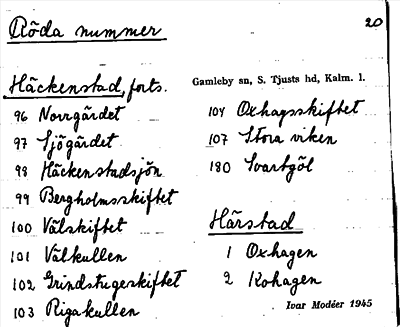 Röda nummer
20
Häckenstad, forts.
96 Norrgärdet
97 Sjögärdet
98 Häckenstadsjön
99 Bergholmsskiftet
100 Välskiftet
101 Välkullen
102 Grindstugeskiftet
103 Rigakullen
Gamleby sn, S. Tjusts hd, Kalm. l.
104 Oxhagsskiftet
107 Stora viken
180 Svartgöl
Hårstad
1 Oxhagen
2 Kohagen
Ivar Modéer 1945